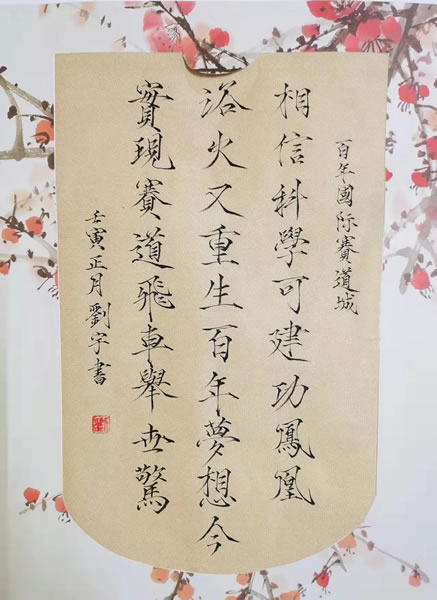 百年國际賽道城
相信科學可建功鳳凰
浴火又重生百年夢想今
實現賽道飛車舉世驚
壬寅正月劉宇書